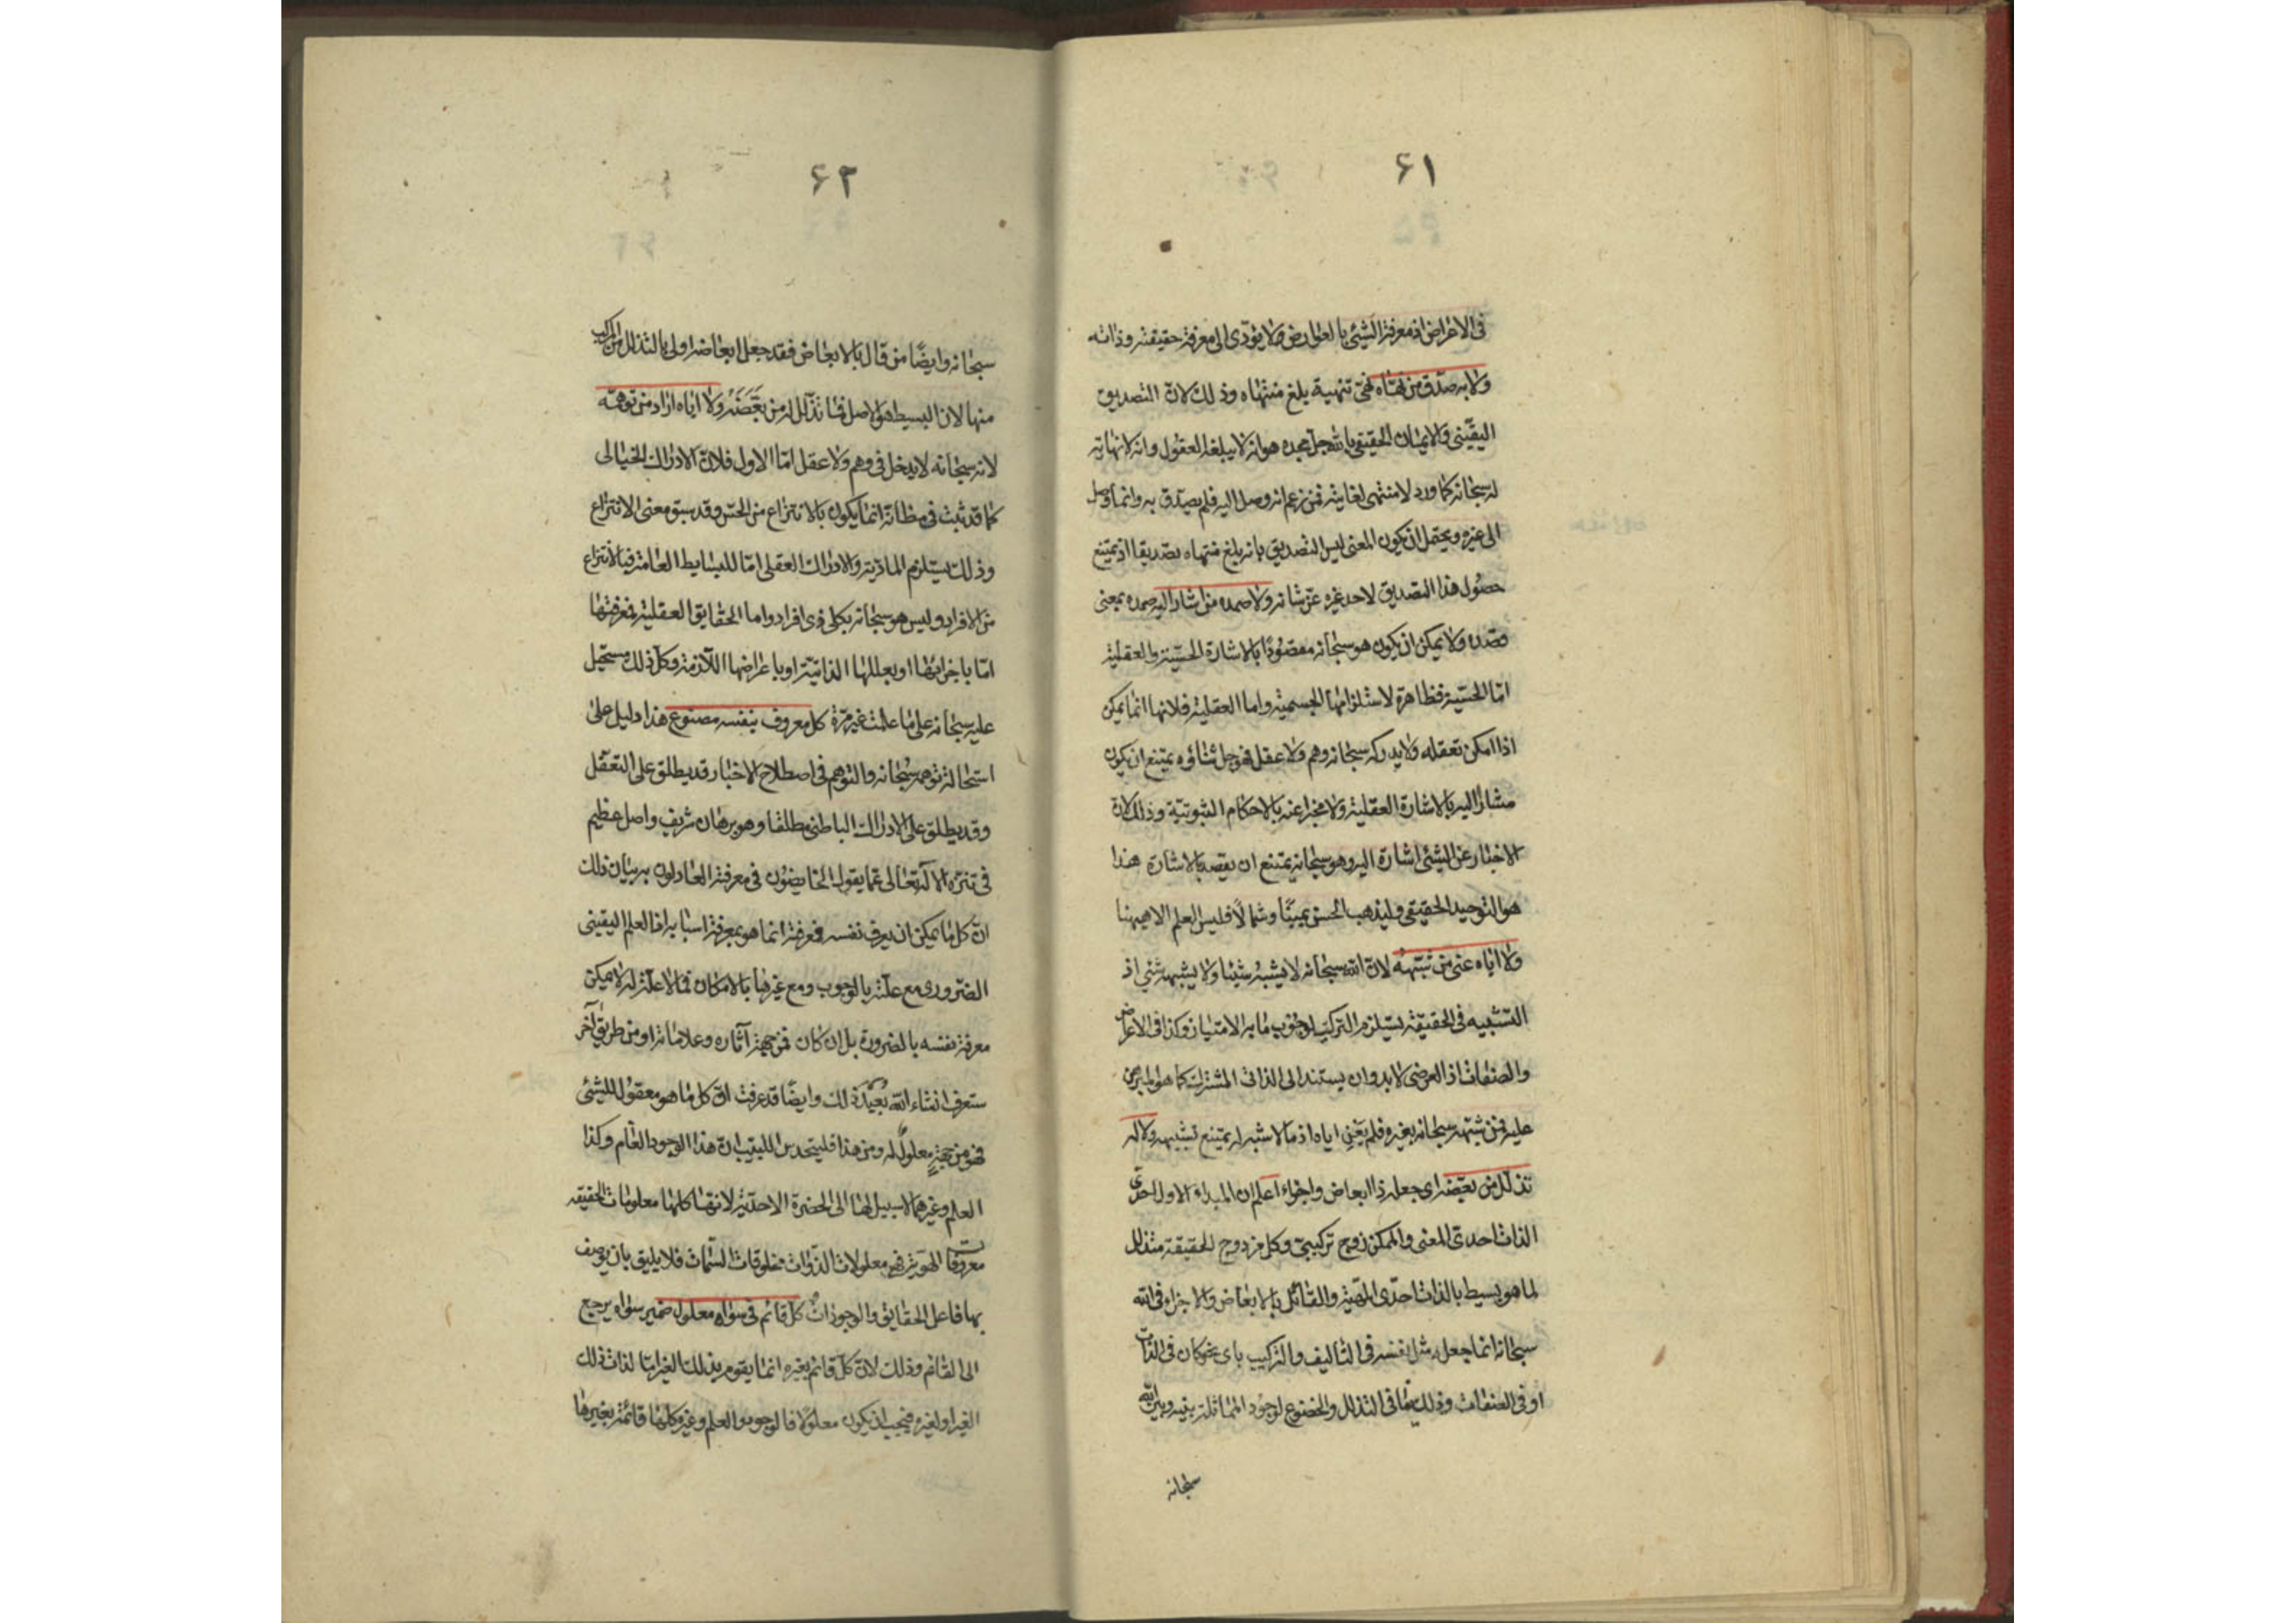 ۶۱
فى الاعراض اذ معرفة الشيئ بالعوارض ممّا لا يؤدّى الى معرفة حقيقته وذاته
ولا به صدّق من نهّاه نهّى تنهية بلغ منتهاه وذلك لانّ التصديق
اليقينى والايمان الحقيقى بالله جل مجده هو انه لا يبلغه العقول وانه لا نهاية
له سبحانه كما ورد لا منتهى لغايته فمن زعم انه وصل اليه فلم يصدّق به وانما وصل
الى غيره ويحتمل ان يكون المعنى ليس التصديق بانه بلغ منتهاه تصديقا اذ يمتنع
حصول هذا التصديق لاحد غيره عزّ شانه ولا صمده من اشار اليه صمده بمعنى
قصده ولا يمكن ان يكون هو سبحانه مقصودًا بالاشارة الحسّية والعقلية
امّا الحسّية فظاهرة لاستلزامها الجسمية واما العقلية فلانها انما يمكن
اذا امكن تعقله ولا يدركه سبحانه وهم ولا عقل فهو جل ثناؤه يمتنع ان يكون
مشارًا اليه بالاشارة العقلية ولا مخبرا عنه بالاحكام الثبوتية وذلك لانّ
الاخبار عن الشيئ اشارة اليه وهو سبحانه يمتنع ان يقصد بالاشارة هذا
هو التوحيد الحقيقى وليذهب الحسن يمينًا وشمالًا فليس العلم الا هيهنا
ولا اياه عنى من شبّهه لانّ الله سبحانه لا يشبه شيئا ولا يشبهه شئ اذ
التشبيه فى الحقيقة يستلزم التركيب لوجوب ما به الامتياز وكذا فى الاعراض
والصفات اذ العرضى لابد وان يستند الى الذاتى المشترك كما هو المبرهن
عليه فمن شبّهه سبحانه بغيره فلم يَعْنِ اياه اذ ما لا شبه له يمتنع تشبيهه ولا له
تذلّل من بعّضه اى جعله ذا ابعاض واجزاء اعلم ان المبداء الاول احدىّ
الذات احدى المعنى والممكن زوج تركيبىّ وكل مزدوج الحقيقة متذلل
لما هو بسيط بالذات احدّى المهيّة والقائل بالابعاض والاجزاء فى الله
سبحانه انما جعله مثل نفسه فى التاليف والتركيب باى نحو كان فى الذات
او فى الصفات وذلك ينافى التذلل والخضوع لوجود المماثلة بينه وبين الله
سبحانه
۶۲
سبحانه وايضًا من قال بالابعاض فقد جعل ابعاضه اولى بالتذلل من المركب
منها لان البسيط هو الاصل فما تذّلل له من بَعَّضَهُ ولا اياه اراد من توهّمه
لانه سبحانه لا يدخل فى وهم ولا عقل امّا الاول فلانّ الادراك الخيالى
كما قد ثبت فى مظانّه انما يكون بالانتزاع من الحسّ وقد سبق معنى الانتزاع
وذلك يستلزم المادّية والادراك العقلى امّا للبسايط العامة فبالانتزاع
من الافراد وليس هو سبحانه بكلى ذى افراد واما الحقايق العقلية فمعرفتها
امّا باجزائها او بعللها الذاتيّة او باعراضها اللّازمة وكلّ ذلك مستحيل
عليه سبحانه على ما علمت غير مرّة كل معروف بنفسه مصنوع هذا دليل على
استحالة توهمه سبحانه والتوهم فى اصطلاح الاخبار قد يطلق على التعقّل
وقد يطلق على الادراك الباطنى مطلقا وهو برهان شريف واصل عظيم
فى تنزّه الاله تعالى عما يقول الخايضون فى معرفته العادلون به بيان ذلك
انّ كل ما يمكن ان يعرف نفسه فمعرفته انما هو بمعرفة اسبابه اذ العلم اليقينى
الضّرورى مع علّته بالوجوب ومع غيرها بالامكان فما لا علّة له لا يمكن
معرفة نفسه بالضرورة بل ان كان فمن جهة آثاره وعلاماته او من طريق آخر
ستعرف انشاء الله بُعَيْدَ ذلك وايضًا قد عرفت انّ كل ما هو معقول للشيئ
فهو من جهةٍ معلولٌ له ومن هذا فليتحدس اللبيب انّ هذا الوجود العام وكذا
العلم وغيرهما لا سبيل لها الى الحضرة الاحديّة لانهّا كلها معلومات الحقيقه
معروفات الهويّة فهى معلولات الذّوات مخلوقات السّمات فلا يليق بان يوصف
بها فاعل الحقايق والوجودات كلّ قائم فى سواه معلول ضمير سواه يرجع
الى القائم وذلك لانّ كلّ قائم بغيره انما يقوم بذلك الغير امّا لذات ذلك
الغير او لغيره فيجب ان يكون معلولًا فالوجود والعلم وغيره كلها قائمة بغيرها